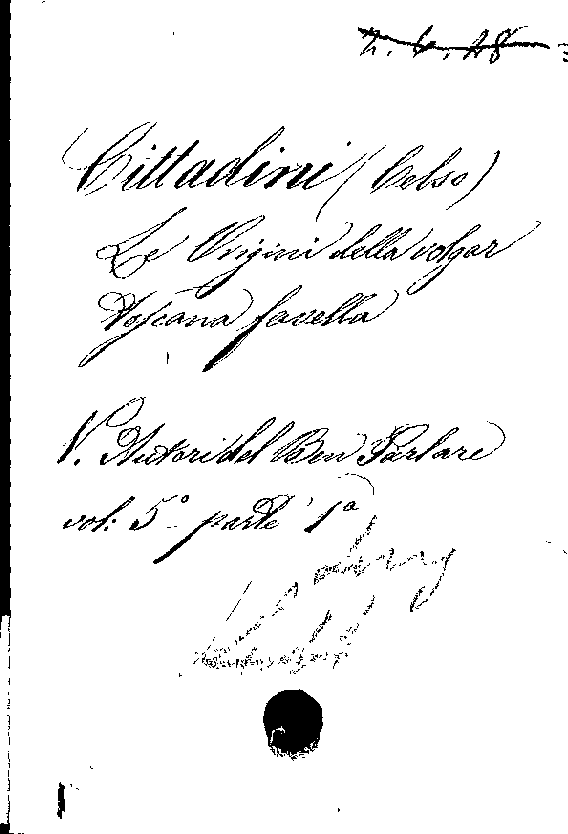 2. 6. 28
Cittadini (Celso)
Le Origini della volgar
Toscana favella
V. Autori del Ben Parlare
vol: 5º parte 1ª